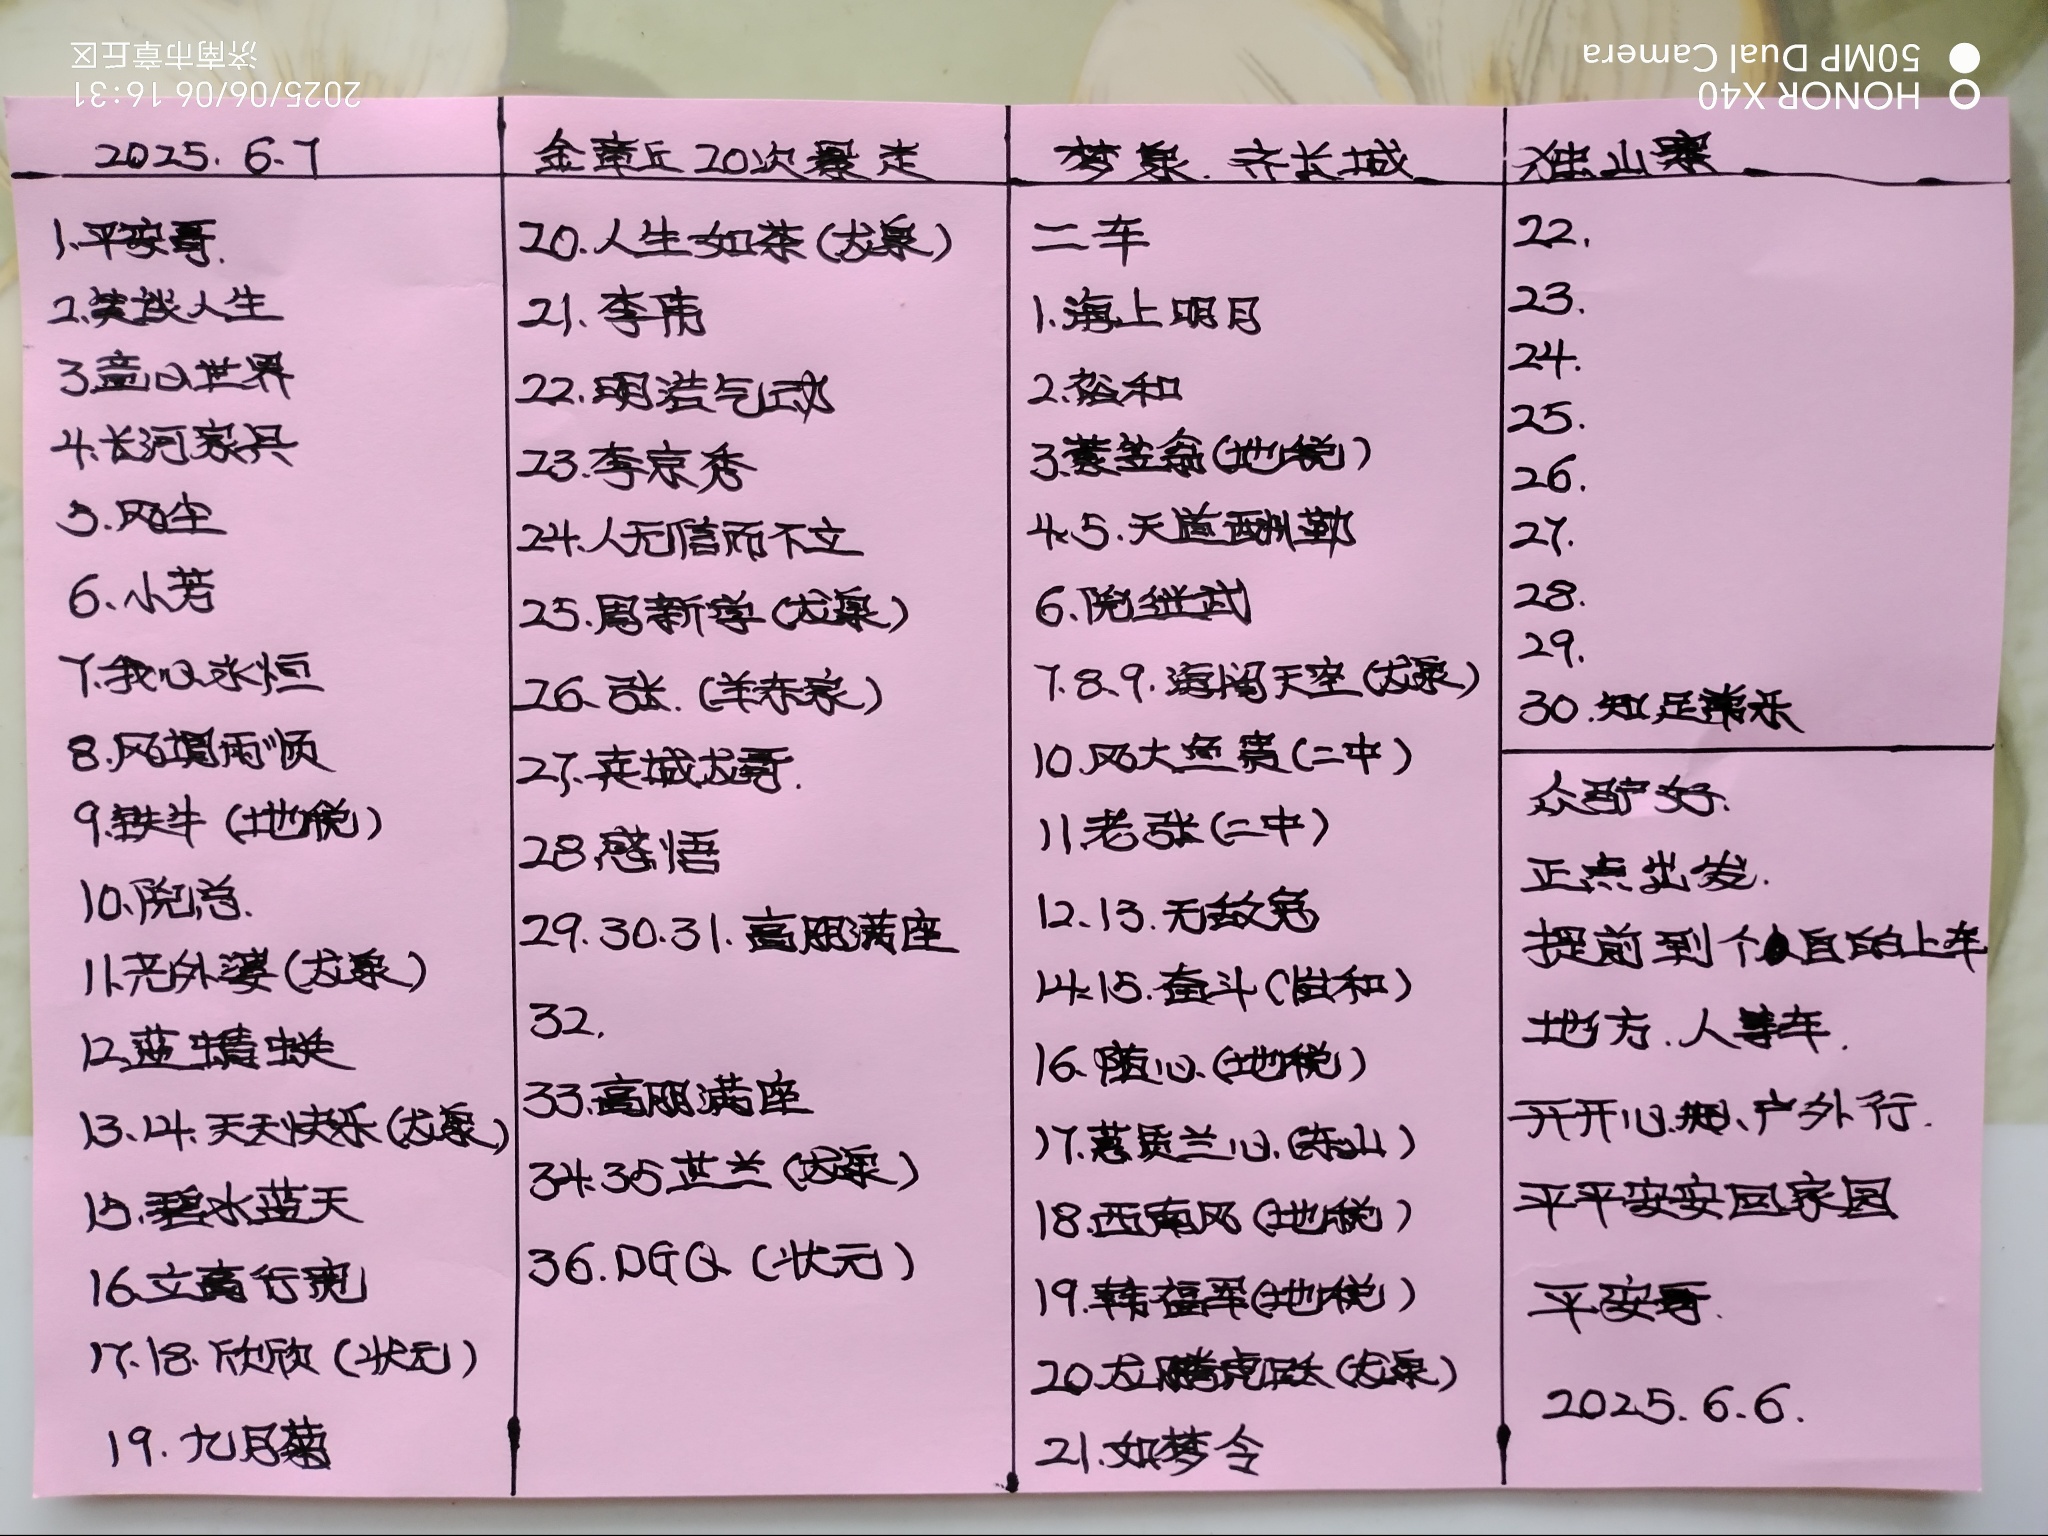 济南市章丘区
2025/06/06 16:31
50MP Dual Camera
HONOR X40
2025.6.7
金章丘20次暴走
梦泉.齐长城
独山寨
1.平安哥.
2.笑谈人生
3.童心世界
4.长河家具
5.风尘
6.小芳
7.我心永恒
8.风调雨顺
9.铁牛(地税)
10.倪总.
11.老外婆(龙泉)
12.蓝蜻蜓
13.14.天天快乐(龙泉)
15.碧水蓝天
16.立高行宛
17.18.欣欣(状元)
19.九月菊
20.人生如茶(龙泉)
21.李伟
22.明浩气动
23.李京秀
24.人无信而不立
25.周新学(龙泉)
26.张.(羊东家)
27.英城龙哥.
28.感悟
29.30.31.高朋满座
32.
33.高朋满座
34.35蓝兰(龙泉)
36.DGQ(状元)
二车
1.海上明月
2.裕和
3.蓑笠翁(地税)
4.5.天道酬勤
6.倪继武
7.8.9.海阔天空(龙泉)
10.风大鱼贵(二中)
11.老张(二中)
12.13.无敌兔
14.15.奋斗(世和)
16.随心.(地税)
17.蕙质兰心.(东山)
18.西南风(地税)
19.韩福军(地税)
20.龙腾虎跃(龙泉)
21.如梦令
22.
23.
24.
25.
26.
27.
28.
29.
30.知足常乐
众驴好.
正点出发.
提前到个人自的上车
地方.人等车.
开开心心、户外行.
平平安安回家园
平安哥.
2025.6.6.